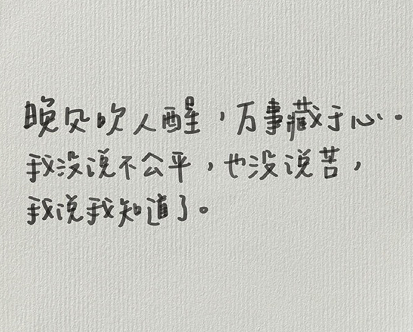 晚风吹人醒，万事藏于心。
我没说不公平，也没说苦，
我说我知道了。